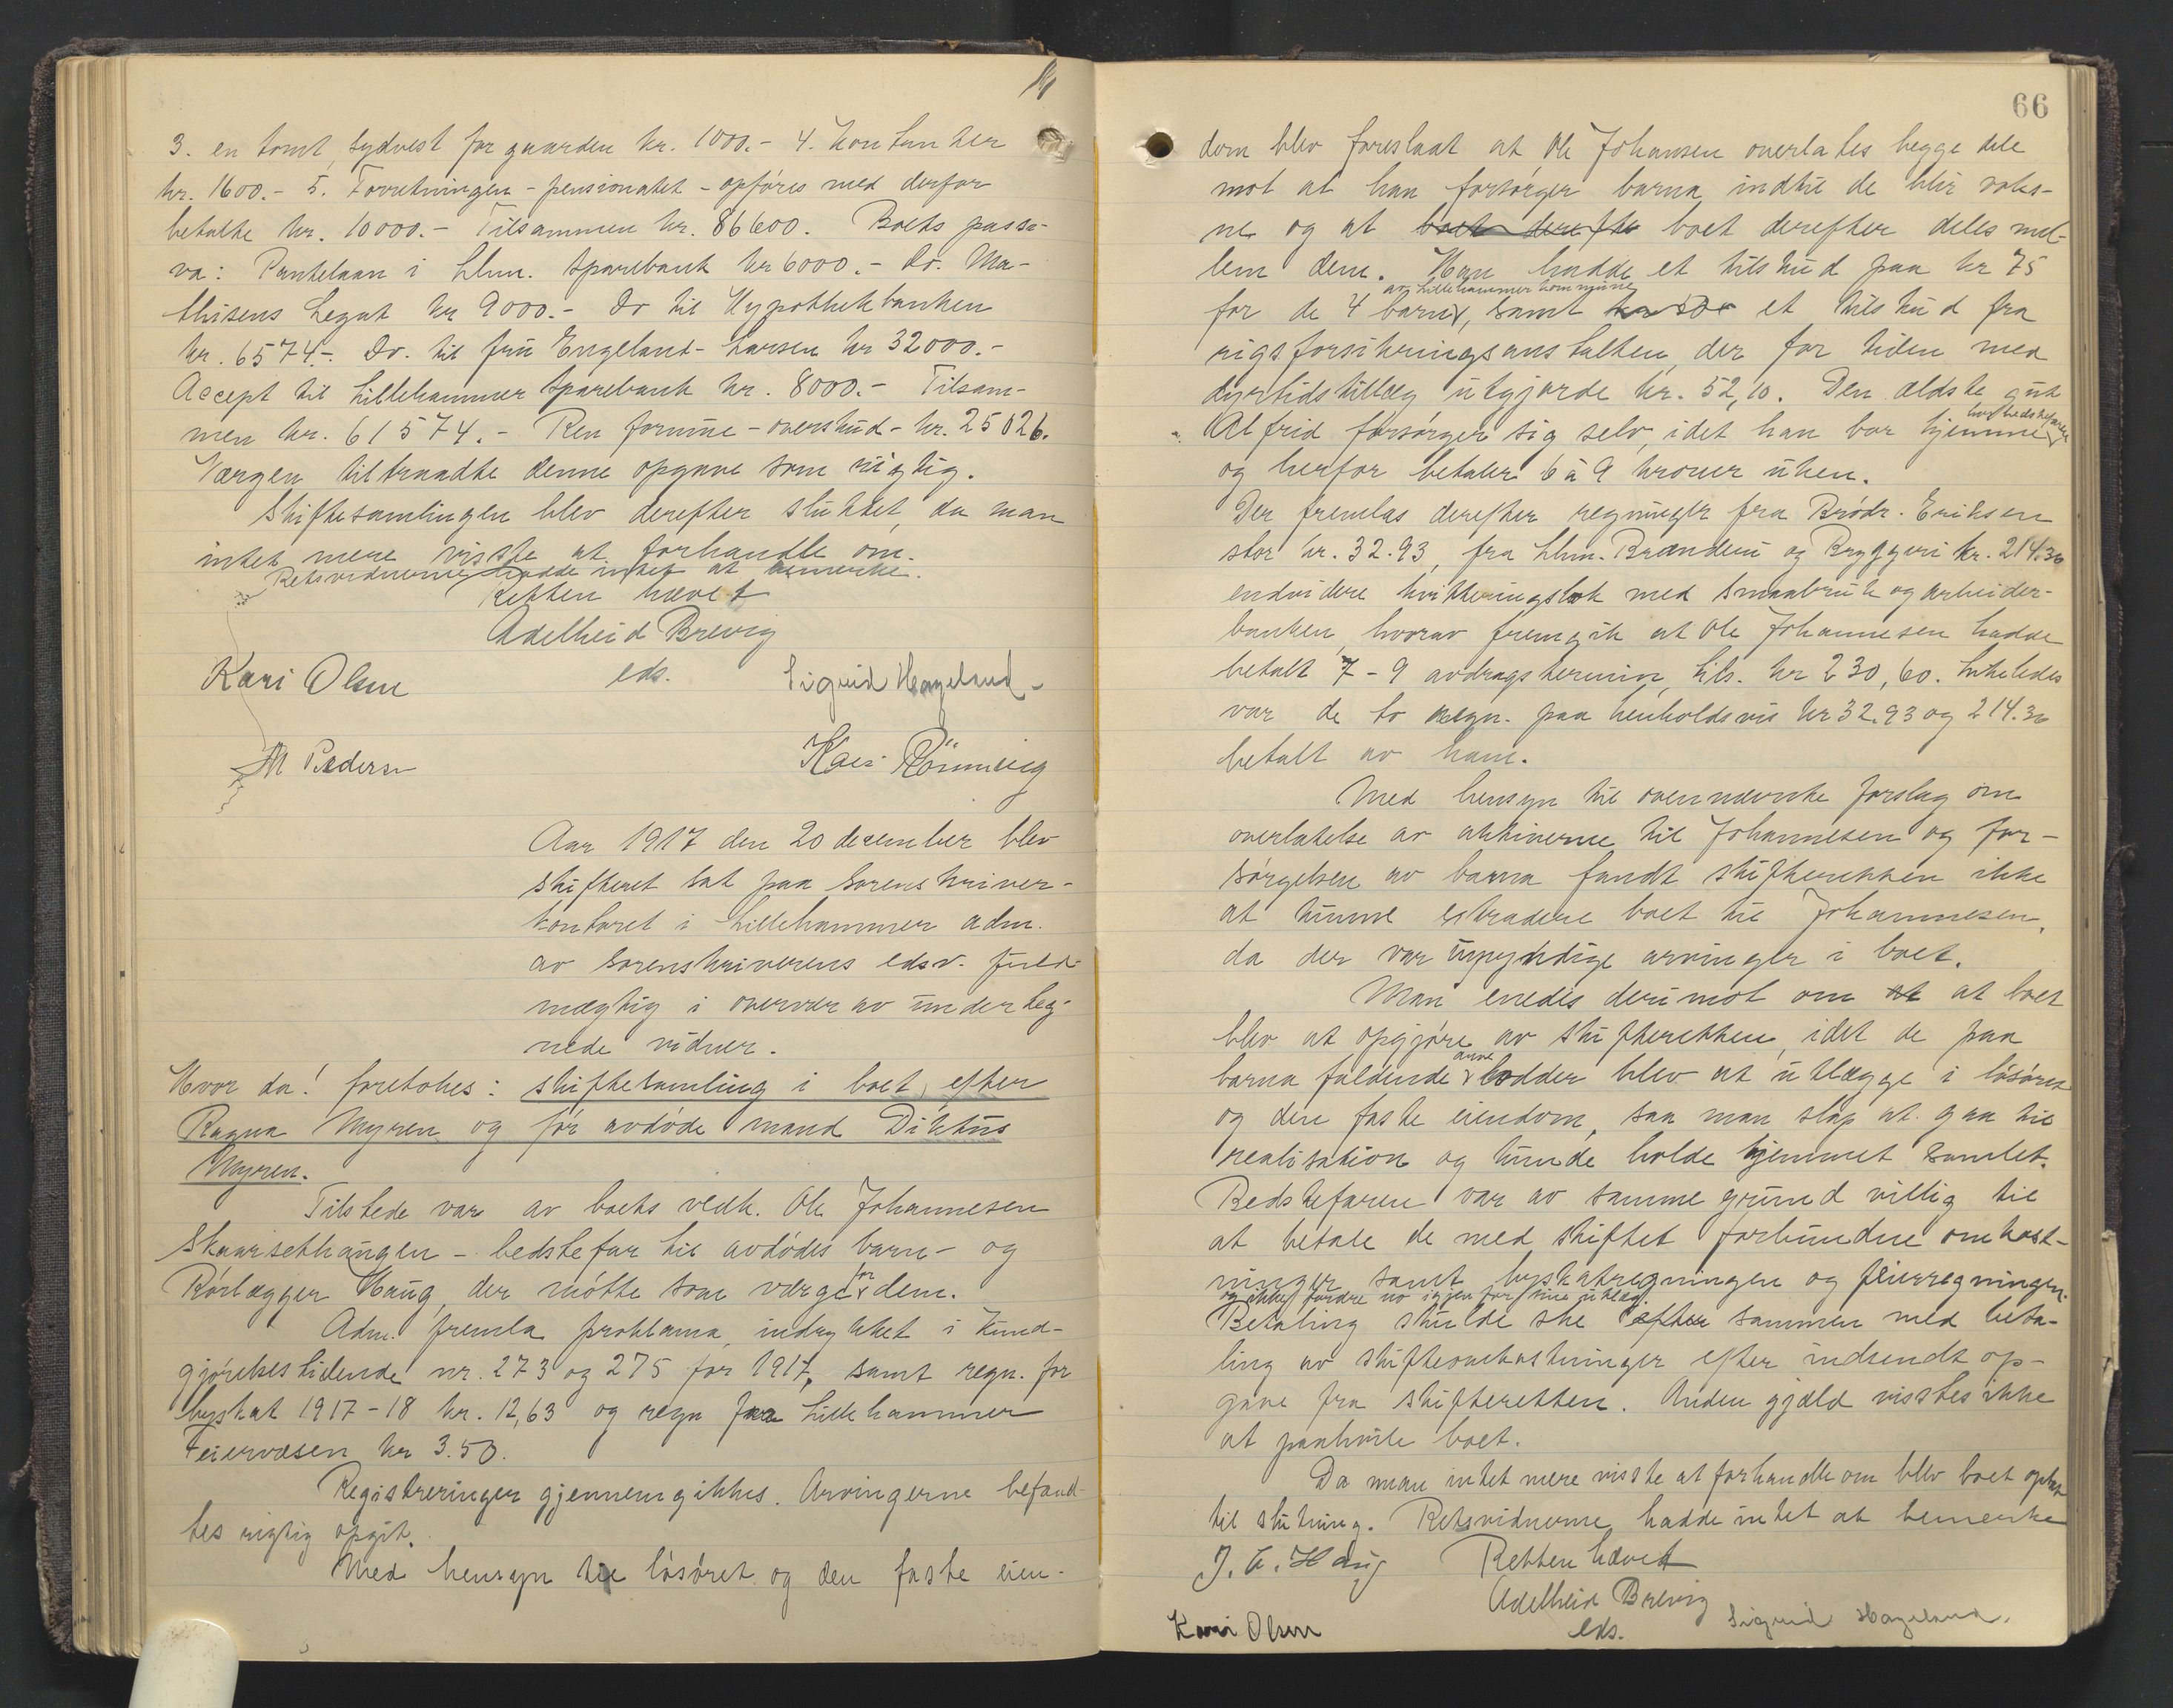 3. en tomt, sydvest for gaarden kr. 1000.- 4. Kontanter
kr. 1600.- 5. Forretningen - pensionatet - opføres med derfor
betalte kr. 10000.- Tilsammen kr. 86600. Boets passi-
va: Pantelaan i Lhm. Sparebank kr 6000.- Do. Ma-
thisens Legat kr 9000.- Do til Hypothekbanken
kr. 6574.- Do. til fru Engeland-Larsen kr 32000.-
Accept til Lillehammer Sparebank kr. 8000.- Tilsam-
men kr. 61574.- Ren formue - overskud - kr. 25026.
Værgen tiltraadte denne opgave som rigtig.
Skiftesamlingen blev derefter sluttet, da man
intet mere visste at forhandle om.
Retsvidnerne hadde intet at bemerke.
Retten hævet
Adelheid Brevig
eds.
Kari Olsen
Sigrid Hageland
M Pedersen
Kari Rönning
Aar 1917 den 20 december blev
skifteret sat paa sorenskriver-
kontoret i Lillehammer adm.
av sorenskriverens edsv. fuld-
mægtig i overvær av underteg-
nede vidner.
Hvor da! foretokes: skiftesamling i boet efter
Ragna Myren og før avdøde mand Diktus
Myren.
Tilstede var av boets vedk. Ole Johannesen
Skaarsethaugen - bedstefar til avdødes barn - og
Rørlægger Haug, der møtte som værge for dem.
Adm. fremla proklama, indrykket i Kund-
gjørelsestidende nr. 273 og 275 for 1917, samt regn. for
byskat 1917-18 kr. 12,63 og regn fra Lillehammer
Feiervæsen kr 3.50.
Registreringen gjennemgikkes. Arvingerne befand-
tes rigtig opgit.
Med hensyn til løsøret og den faste eien-
66
dom blev foreslaat at Ole Johansen overlates begge dele
mot at han forsørger barna indtil de blir voks-
ne og at boet derefter boet derefter deles mel-
lem dem. Han hadde et tilskud paa kr 75
av Lillehammer kommune
for de 4 barna, samt et tilskud fra
rigsforsikringsanstalten, der for tiden med
dyrtidstillæg utgjorde kr. 52,10. Den ældste gut
hos bedstefaren
Alfrid forsørger sig selv, idet han bor hjemme
og herfor betaler 6 à 9 kroner uken.
Der fremlas derefter regninger fra Brødr. Eriksen
stor kr. 32.93, fra Lhm. Brænderi og Bryggeri kr. 214.30
endvidere kvitteringsbok med Smaabruk og arbeider-
banken, hvorav fremgik at Ole Johannesen hadde
betalt 7-9 avdragstermin, tils. kr 230,60. Likeledes
var de to regn. paa henholdsvis kr 32.93 og 214.30
betalt av ham.
Med hensyn til ovennævnte forslag om
overlatelse av aktiverne til Johannesen og for-
sørgelsen av barna fandt skifteretten ikke
at kunne extradere boet til Johannesen,
da der var umyndige arvinger i boet.
Man enedes derimot om at at boet
blev at opgjøre av skifteretten, idet de paa
arve
barna faldende lodder blev at utlægge i løsøret
og den faste eiendom, saa man slap at gaa til
realisation og kunde holde hjemmet samlet.
Bedstefaren var av samme grund villig til
at betale de med skiftet forbundne omkost-
ninger samt byskatregningen og feierregningen.
og ikke fordre no igjen for sine utlæg.
Betaling skulde ske efter sammen med beta-
ling av skifteomkostninger efter indsendt op-
gave fra skifteretten. Anden gjæld visstes ikke
at paahvile boet.
Da man intet mere visste at forhandle om blev boet optat
til slutning. Retsvidnerne hadde intet at bemerke
J. C. Haug Retten hævet
Adelheid Brevig
eds.
Kari Olsen
Sigrid Hageland.